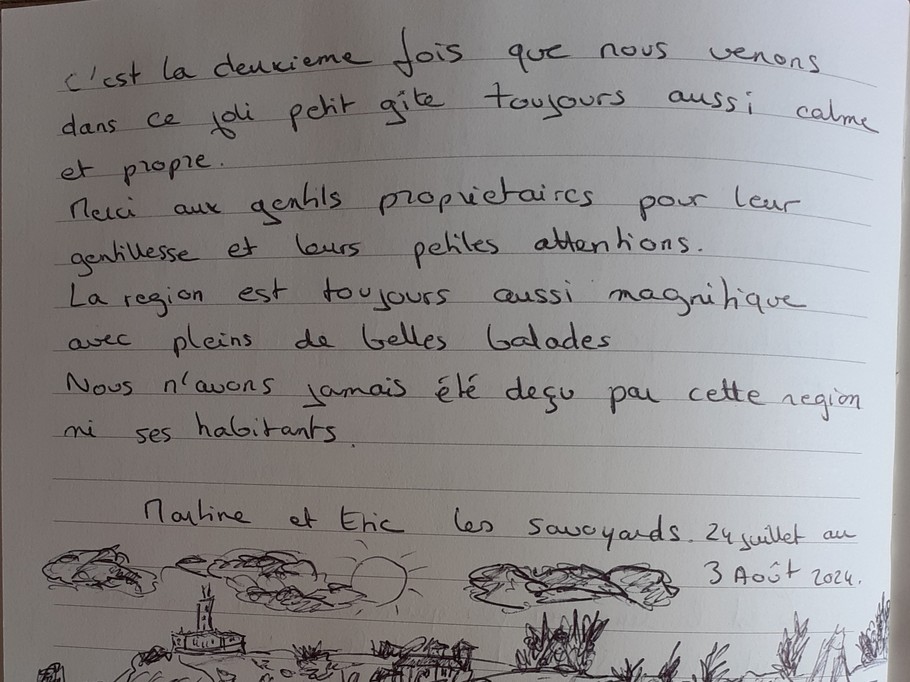 c'est la deuxieme fois que nous venons
dans ce joli petit gîte toujours aussi calme
et propre.
Merci aux gentils proprietaires pour leur
gentillesse et leurs petites attentions.
La region est toujours aussi magnifique
avec pleins de belles balades
Nous n'avons jamais été deçu par cette region
ni ses habitants.
Martine et Eric les savoyards. 24 juillet au
3 Août 2024.